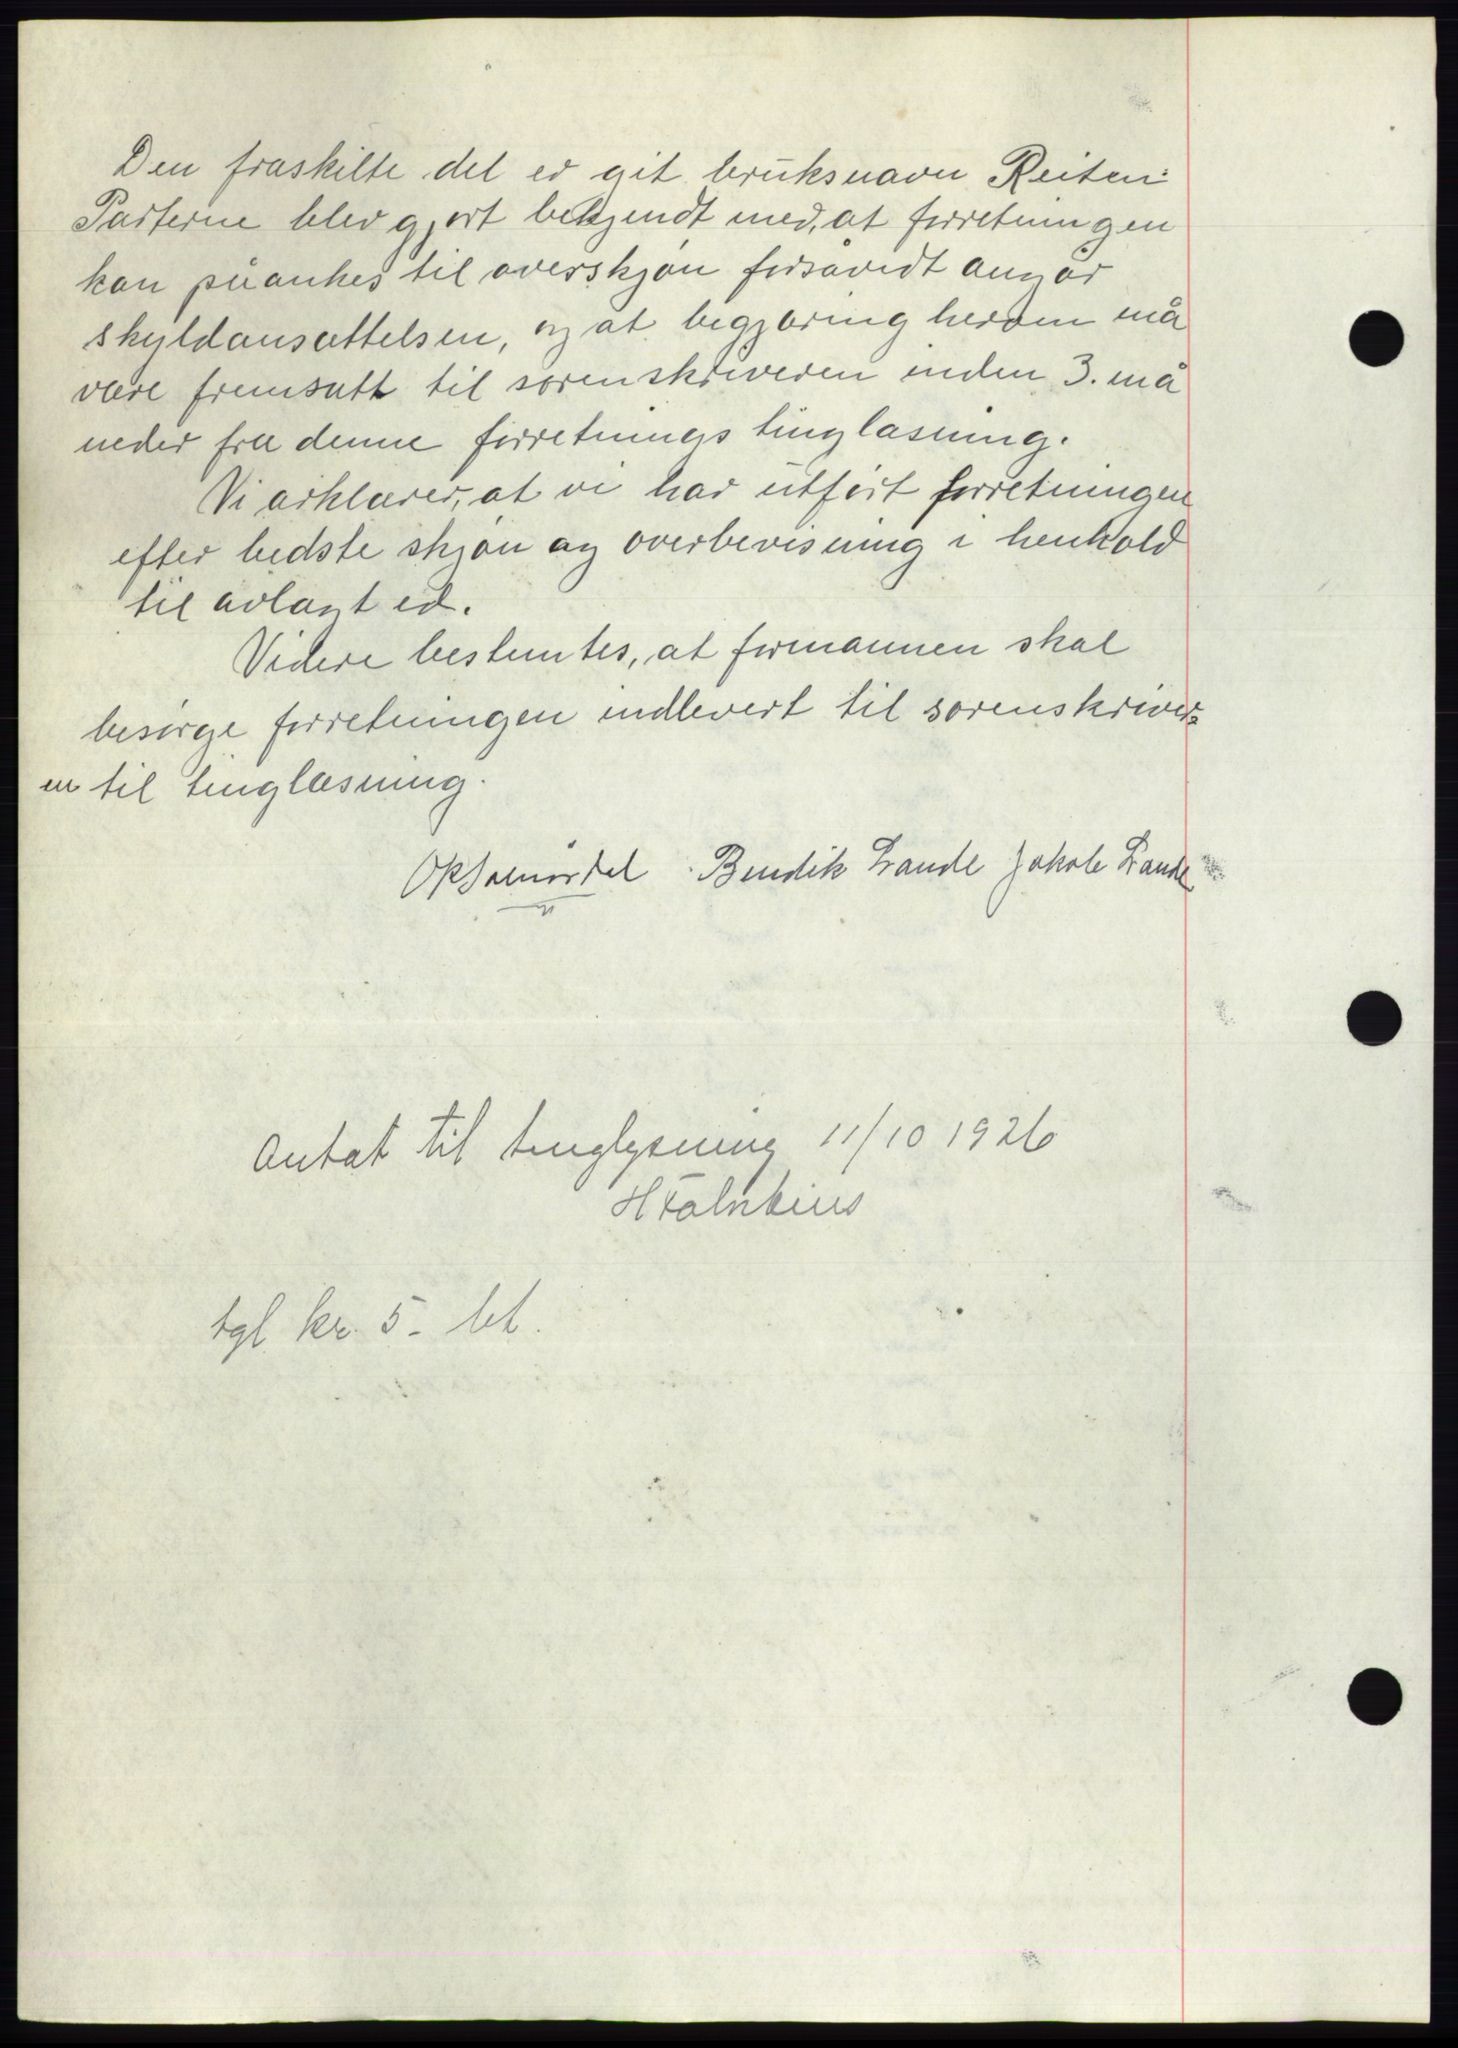 Den fraskilte del er git bruksnavn Reiten.
Parterne blev gjort bekjendt med, at forretningen
kan påankes til overskjøn forsåvidt angår
skyldansættelsen, og at begjæring herom må
være fremsatt til sorenskriveren inden 3. må
neder fra denne forretnings tinglæsning.
Vi erklærer, at vi har utført forretningen
efter bedste skjøn og overbevisning i henhold
til avlagt ed.
Videre bestemtes, at formannen skal
besørge forretningen indlevert til sorenskriver=
en til tinglæsning.
Bendik Lande Jakob Lande
Antat til tinglysning 11/10 1926
tgl kr. 5- bet.